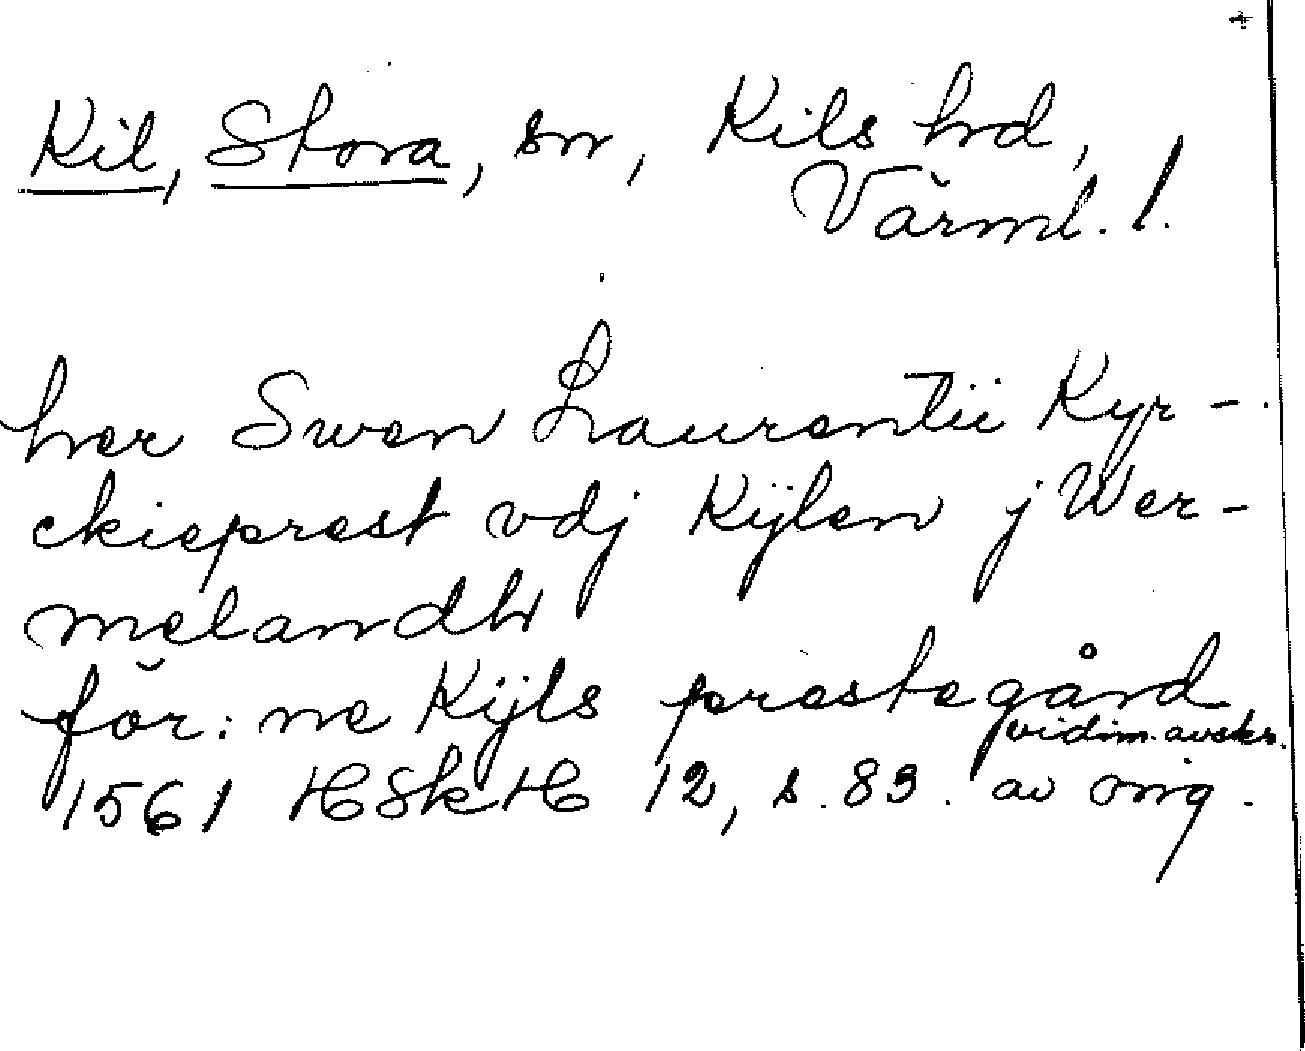 +
Kil, Stora, sn, Kils hrd,
Värml. l.
her Swen Laurentii Kyr-
ckieprest vdj Kijlen j Wer-
melandh
för:ne Kijls prestegård
vidim. avskr.
1561 HSkH 12, s. 83. av orig.